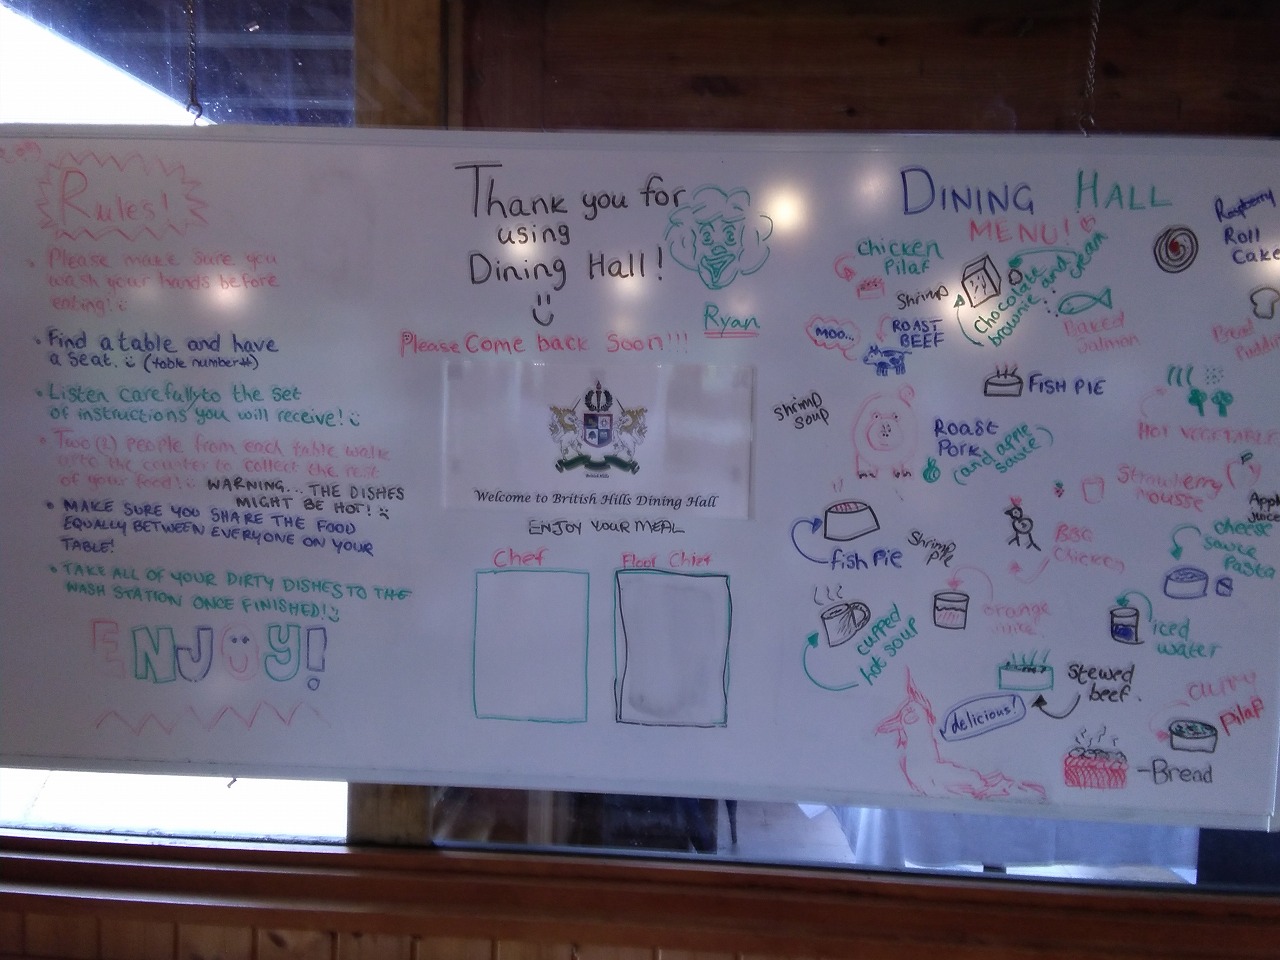 Rules!
Please make sure you
wash your hands before
eating!
Find a table and have
a seat. (table number#)
Listen carefully to the set
of instructions you will receive!
Two (2) people from each table walk
to the counter to collect the rest
of your food! WARNING... THE DISHES
MIGHT BE HOT!
MAKE SURE YOU SHARE THE FOOD
EQUALLY BETWEEN EVERYONE ON YOUR
TABLE!
TAKE ALL OF YOUR DIRTY DISHES TO THE
WASH STATION ONCE FINISHED!
ENJOY!
Thank you for
using
Dining Hall!
Ryan
Please Come back Soon!!!
Welcome to British Hills Dining Hall
ENJOY YOUR MEAL
Chef
Floor Chief
DINING HALL
MENU!
Raspberry
Roll
Cake
Chicken
Pilaf
Shrimp
Chocolate
brownie and
cream
Baked
Salmon
Bread
Pudding
MOO...
ROAST
BEEF
FISH PIE
Shrimp
soup
HOT VEGETABLE
ROAST
PORK
(and apple
sauce)
Strawberry
mousse
Apple
juice
fish pie
Shrimp
Pie
BBQ
Chicken
cheese
sauce
Pasta
cupped
hot soup
orange
juice
iced
water
stewed
beef.
delicious!
curry
pilaf
-Bread